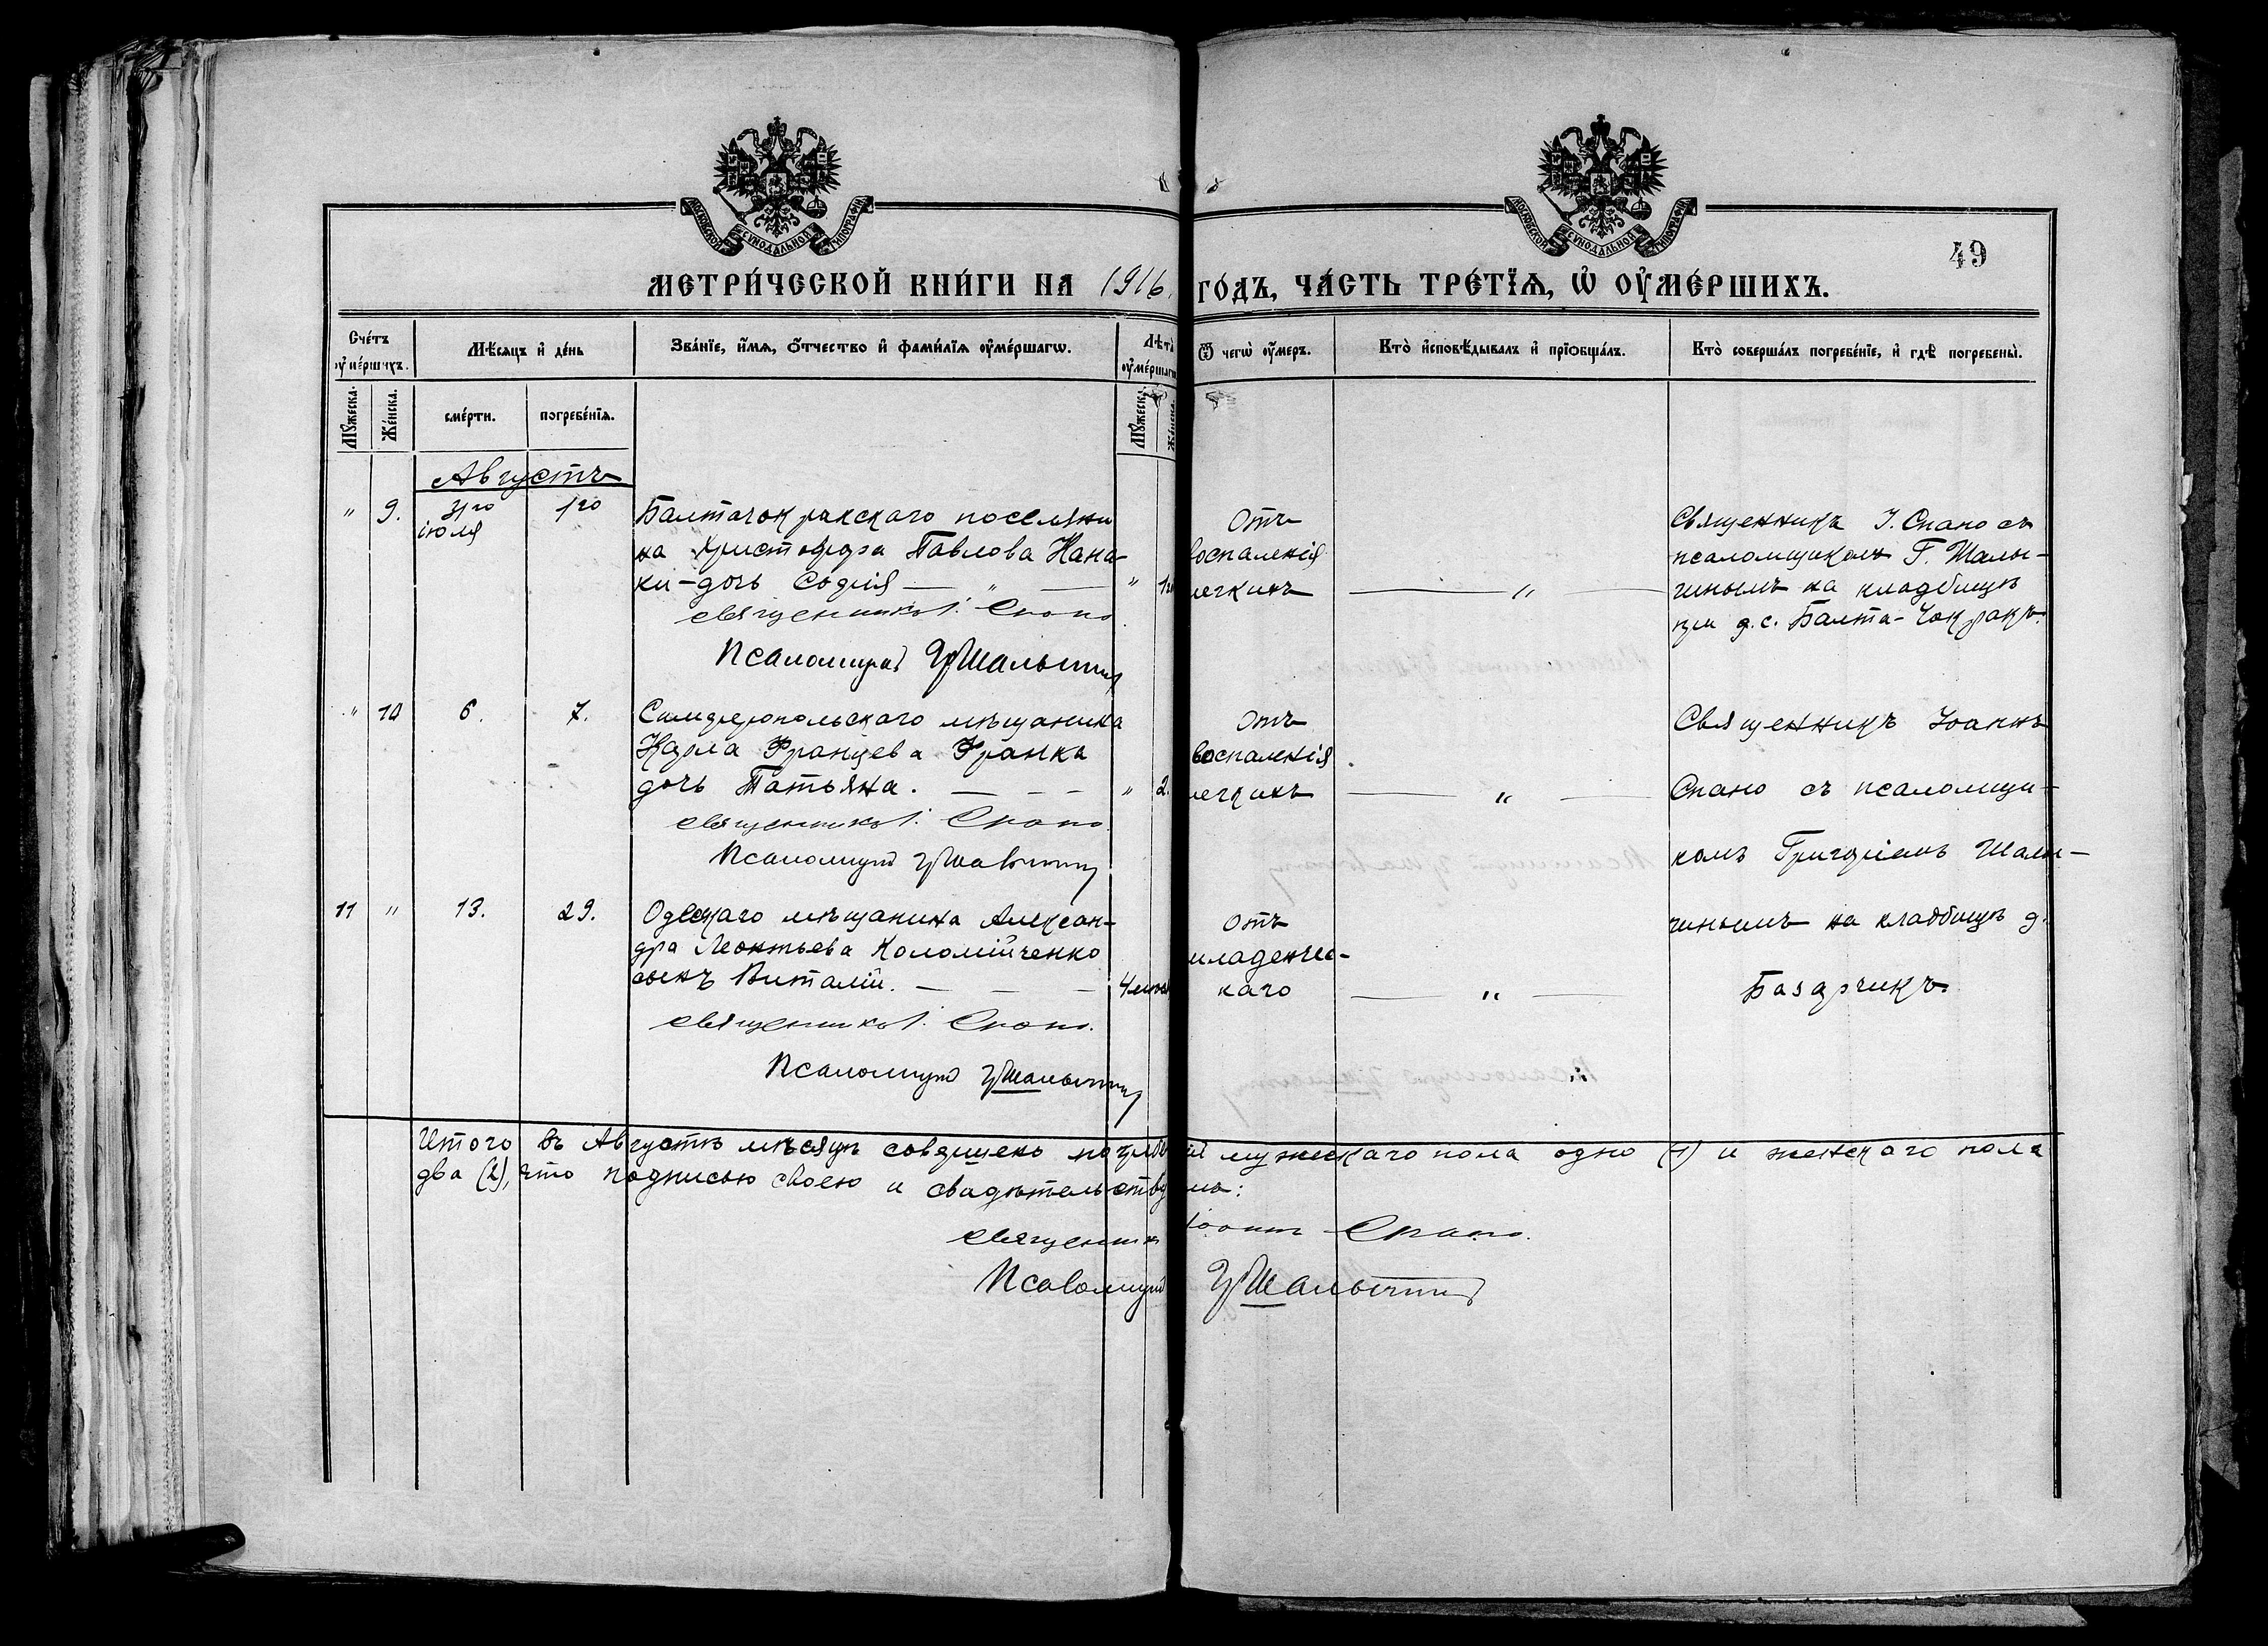 МОСКОВСКОЙ СѴНОДАЛЬНОЙ ТИПОГРАФІИ
МОСКОВСКОЙ СѴНОДАЛЬНОЙ ТИПОГРАФІИ
49
МЕТРИ́ЧЕСКОЙ КНИ́ГИ НА 1916 ГО́ДЪ, ЧА́СТЬ ТРЕ́ТЇѦ, Ѡ҆ ОУ҆МЕ́РШИХЪ.
Сче́тъ оу҆ме́ршихъ.
Мѣ́сѧцъ и҆ де́нь
Зва́нїе, и҆́мѧ, ѻ҆́тчество и҆ фами́лїѧ оу҆ме́ршагѡ.
Лѣ́та оу҆ме́ршагѡ
Ѿ чегѡ̀ оу҆́меръ.
Кто̀ и҆сповѣ́дывалъ и҆ прїѡбща́лъ.
Кто̀ соверша́лъ погребе́нїе, и҆ гдѣ̀ погребены̀.
Мꙋ́жеска.
Же́нска.
сме́рти.
погребе́нїѧ.
Мꙋ́жеска.
Же́нска.
Августъ
" 9. 31го 1го Балтачокракскаго поселяни
іюля
на Христофора Павлова Нана-
ки - дочь Софія — " — "
священникъ І. Спано.
Псаломщикъ Гр Шалыгинъ
Отъ
воспаленія
легкихъ — " —
Священникъ І. Спано съ
псаломщикомъ Г. Шалы-
гинымъ на кладбищѣ
при д. с. Балта-Чокракъ.
" 10 6. 7. Симферопольскаго мѣщанина
Карла Францева Франка
дочь Татьяна. — — — " 2.
священникъ І. Спано.
Псаломщикъ Гр Шалыгинъ
Отъ
воспаленія
легкихъ — " —
Священникъ Іоаннъ
Спано съ псаломщи-
комъ Григоріемъ Шалы-
гинымъ на кладбищѣ д.
Базарчикъ.
11 " 13. 29. Одесскаго мѣщанина Алексан-
дра Леонтьева Коломійченко
сынъ Виталій. — — —
священникъ І. Спано.
Псаломщикъ Гр Шалыгинъ
Отъ
младенчес-
каго — " —
Итого въ Августѣ мѣсяцѣ совершено погребеній мужескаго пола одно (1) и женскаго пола
два (2), что подписью своею и свидѣтельствуемъ:
Священникъ Іоаннъ Спано.
Псаломщикъ Гр Шалыгинъ